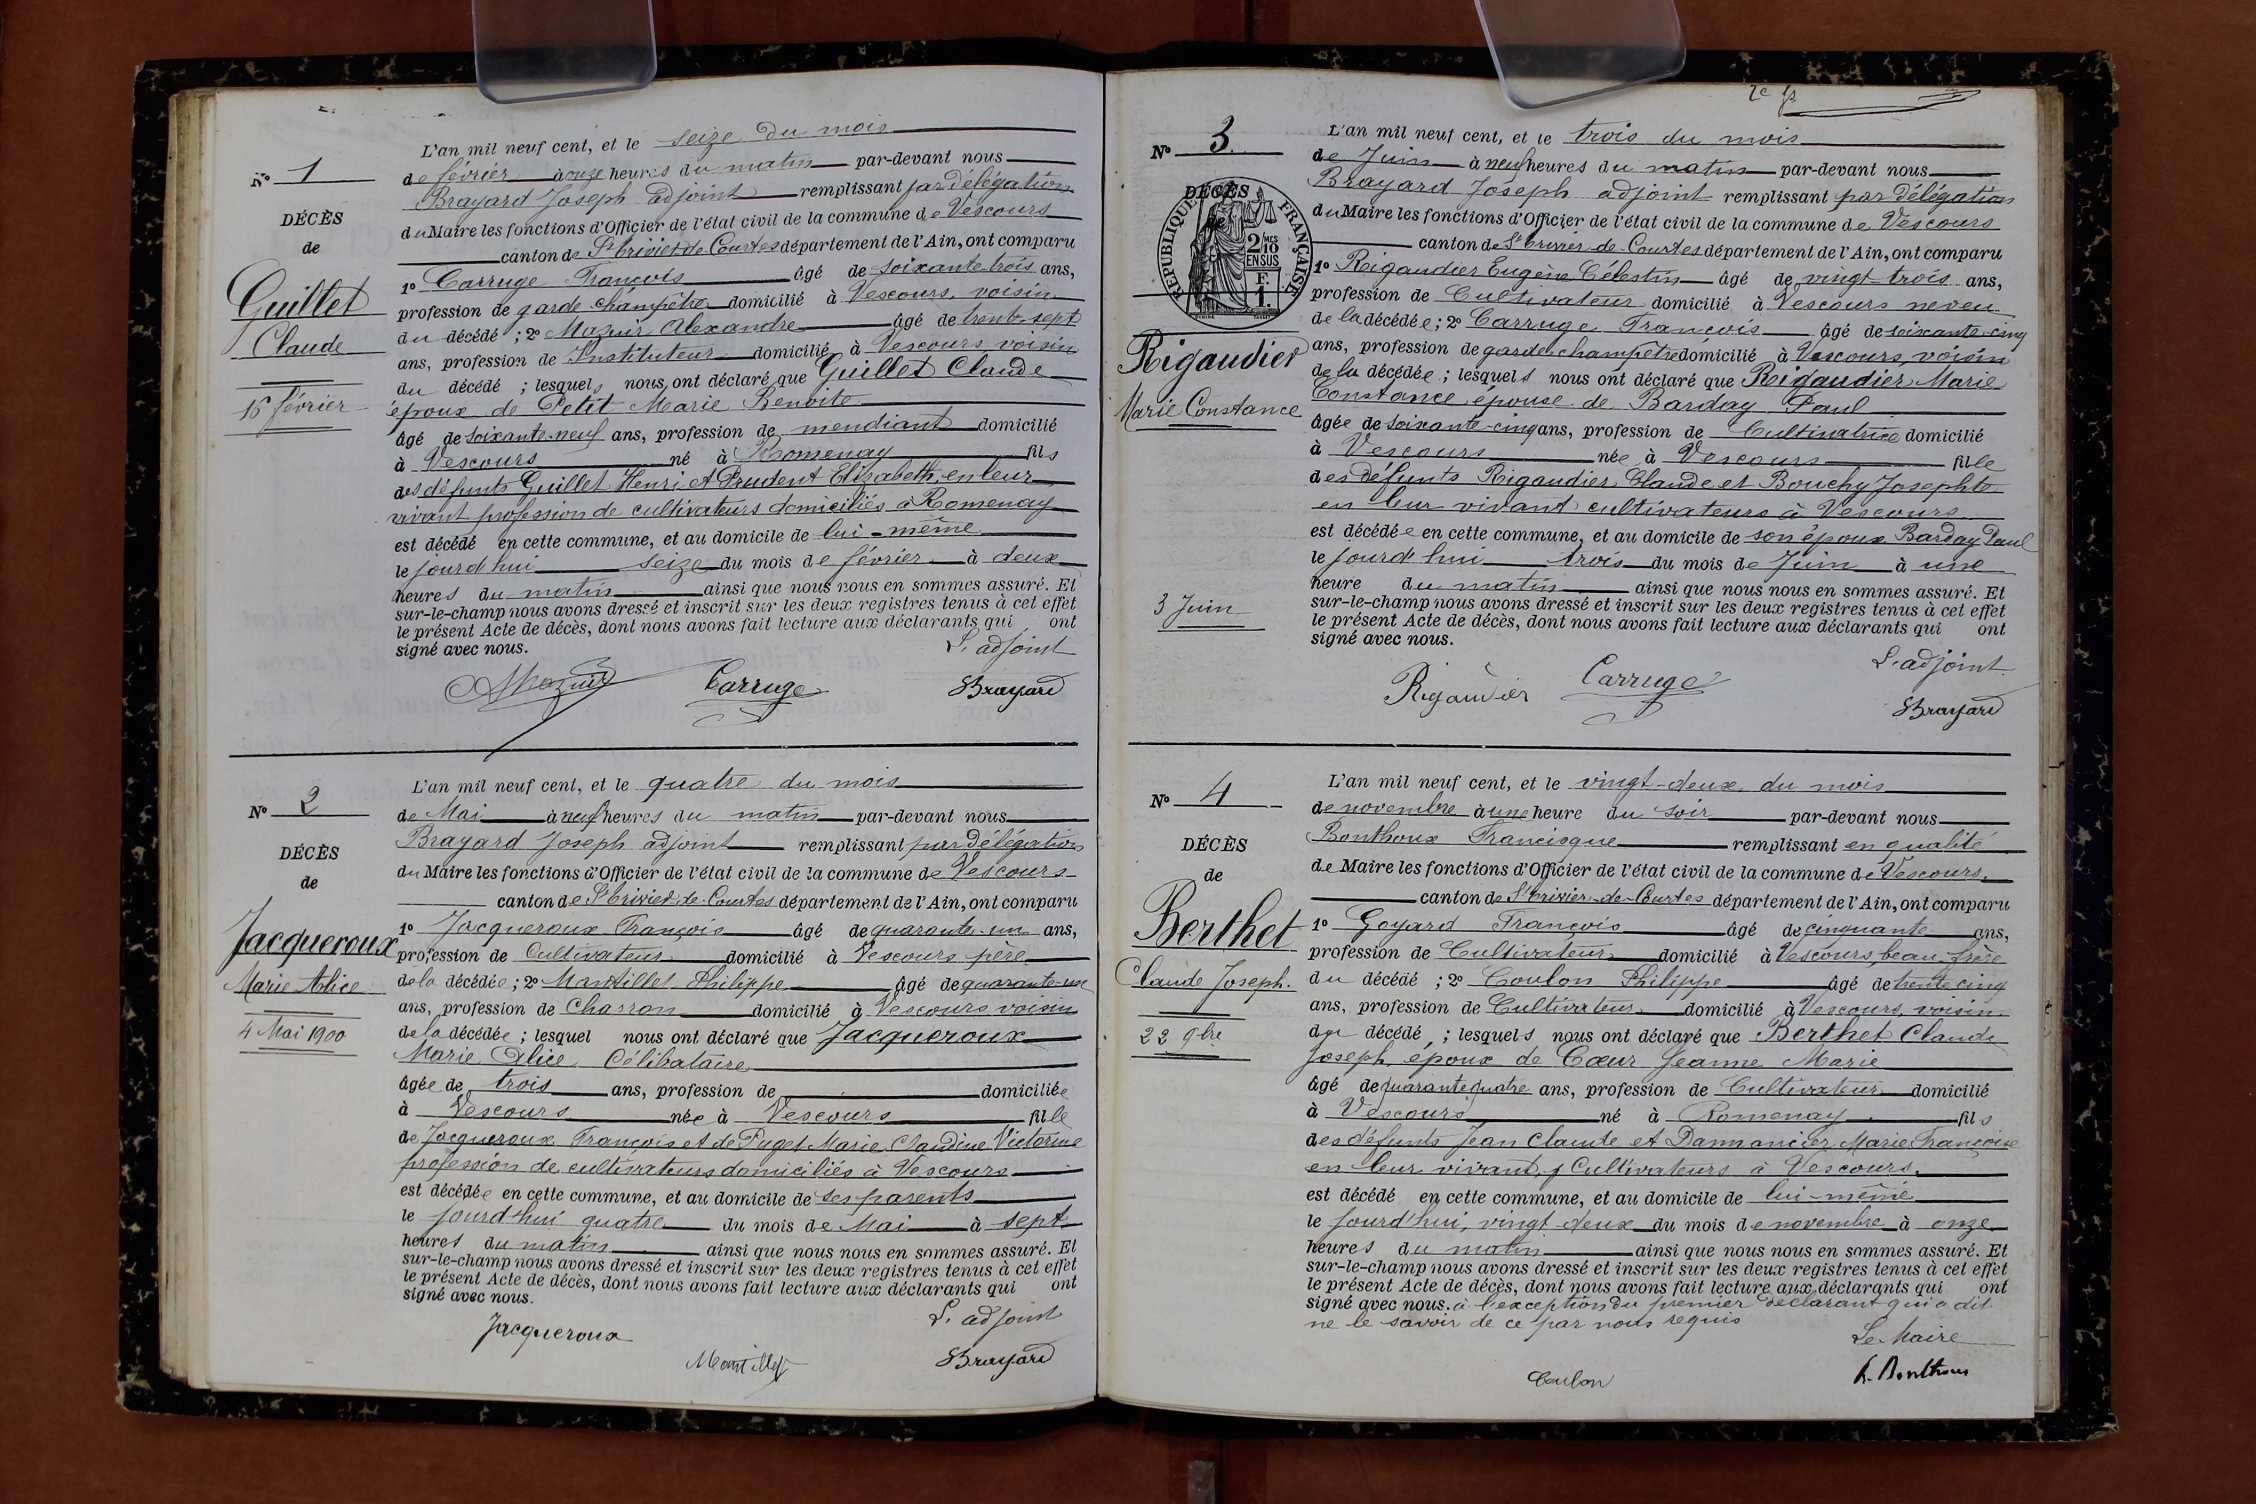 N° 1
DÉCÈS
de
Guillet
Claude
16 février
L'an mil neuf cent, et le seize du mois
de février à onze heures du matin par-devant nous
Brayard Joseph adjoint remplissant par délégation
du Maire les fonctions d'Officier de l'état civil de la commune de Vescours
canton de St Trivier de Courtes département de l'Ain, ont comparu
1° Carruge François âgé de soixante trois ans,
profession de garde champêtre domicilié à Vescours, voisin
du décédé ; 2° Mazuir Alexandre âgé de trente-sept
ans, profession de Instituteur domicilié à Vescours voisin
du décédé ; lesquels nous ont déclaré que Guillet Claude
époux de Petit Marie Benoite
âgé de soixante-neuf ans, profession de mendiant domicilié
à Vescours né à Romenay fils
des défunts Guillet Henri et Prudent Elizabeth, en leur
vivant profession de cultivateurs domiciliés à Romenay
est décédé en cette commune, et au domicile de lui-même
le jourd'hui seize du mois de février à deux
heures du matin ainsi que nous nous en sommes assuré. Et
sur-le-champ nous avons dressé et inscrit sur les deux registres tenus à cet effet
le présent Acte de décès, dont nous avons fait lecture aux déclarants qui ont
signé avec nous.
L'adjoint
AMazuir Carruge JBrayard
N° 2
DÉCÈS
de
Jacqueroux
Marie Alice
4 Mai 1900
L'an mil neuf cent, et le quatre du mois
de Mai à neuf heures du matin par-devant nous
Brayard Joseph adjoint remplissant par délégation
du Maire les fonctions d'Officier de l'état civil de la commune de Vescours
canton de St Trivier de Courtes département de l'Ain, ont comparu
1° Jacqueroux François âgé de quarante-un ans,
profession de Cultivateur domicilié à Vescours père
de la décédée ; 2° Mantillet Philippe âgé de quarante-un
ans, profession de Charron domicilié à Vescours voisin
de la décédée ; lesquel nous ont déclaré que Jacqueroux
Marie Alice Célibataire
âgée de trois ans, profession de domiciliée
à Vescours née à Vescours fille
de Jacqueroux François et de Puget Marie Claudine Victorine
profession de cultivateurs domiciliés à Vescours
est décédée en cette commune, et au domicile de ses parents
le jourd'hui quatre du mois de Mai à sept
heures du matin ainsi que nous nous en sommes assuré. Et
sur-le-champ nous avons dressé et inscrit sur les deux registres tenus à cet effet
le présent Acte de décès, dont nous avons fait lecture aux déclarants qui ont
signé avec nous.
L'adjoint
Jacqueroux Mantillet JBrayard
N° 3
DÉCÈS
RÉPUBLIQUE FRANÇAISE
2/10 MES
EN SUS
F.
1.
Rigaudier
Marie Constance
3 Juin
L'an mil neuf cent, et le trois du mois
de Juin à neuf heures du matin par-devant nous
Brayard Joseph adjoint remplissant par délégation
du Maire les fonctions d'Officier de l'état civil de la commune de Vescours
canton de St Trivier-de-Courtes département de l'Ain, ont comparu
1° Rigaudier Eugène Célestin âgé de vingt-trois ans,
profession de Cultivateur domicilié à Vescours neveu
de la décédée ; 2° Carruge François âgé de soixante-cinq
ans, profession de garde champêtre domicilié à Vescours, voisin
de la décédée ; lesquels nous ont déclaré que Rigaudier Marie
Constance épouse de Barday Paul
âgée de soixante-cinq ans, profession de Cultivatrice domicilié
à Vescours née à Vescours fille
des défunts Rigaudier Claude et Bouchy Josephte
en leur vivant cultivateurs à Vescours
est décédée en cette commune, et au domicile de son époux Barday Paul
le jourd'hui trois du mois de Juin à une
heure du matin ainsi que nous nous en sommes assuré. Et
sur-le-champ nous avons dressé et inscrit sur les deux registres tenus à cet effet
le présent Acte de décès, dont nous avons fait lecture aux déclarants qui ont
signé avec nous.
L'adjoint
Rigaudier Carruge JBrayard
N° 4
DÉCÈS
de
Berthet
Claude Joseph.
22 9bre
L'an mil neuf cent, et le vingt-deux du mois
de novembre à une heure du soir par-devant nous
Bonthoux Francisque remplissant en qualité
de Maire les fonctions d'Officier de l'état civil de la commune de Vescours,
canton de St Trivier-de-Courtes département de l'Ain, ont comparu
1° Goyard François âgé de cinquante ans,
profession de Cultivateur domicilié à Vescours, beau-frère
du décédé ; 2° Coulon Philippe âgé de trente cinq
ans, profession de Cultivateur domicilié à Vescours, voisin
du décédé ; lesquels nous ont déclaré que Berthet Claude
Joseph, époux de Cœur Jeanne Marie
âgé de quarante quatre ans, profession de Cultivateur domicilié
à Vescours né à Romenay fils
des défunts Jean Claude et Dammancier Marie Françoise
en leur vivant, Cultivateurs à Vescours.
est décédé en cette commune, et au domicile de lui-même
le jourd'hui, vingt-deux du mois de novembre à onze
heures du matin ainsi que nous nous en sommes assuré. Et
sur-le-champ nous avons dressé et inscrit sur les deux registres tenus à cet effet
le présent Acte de décès, dont nous avons fait lecture aux déclarants qui ont
signé avec nous. à l'exception du premier déclarant qui a dit
ne le savoir de ce par nous requis
Le Maire
Coulon F. Bonthoux